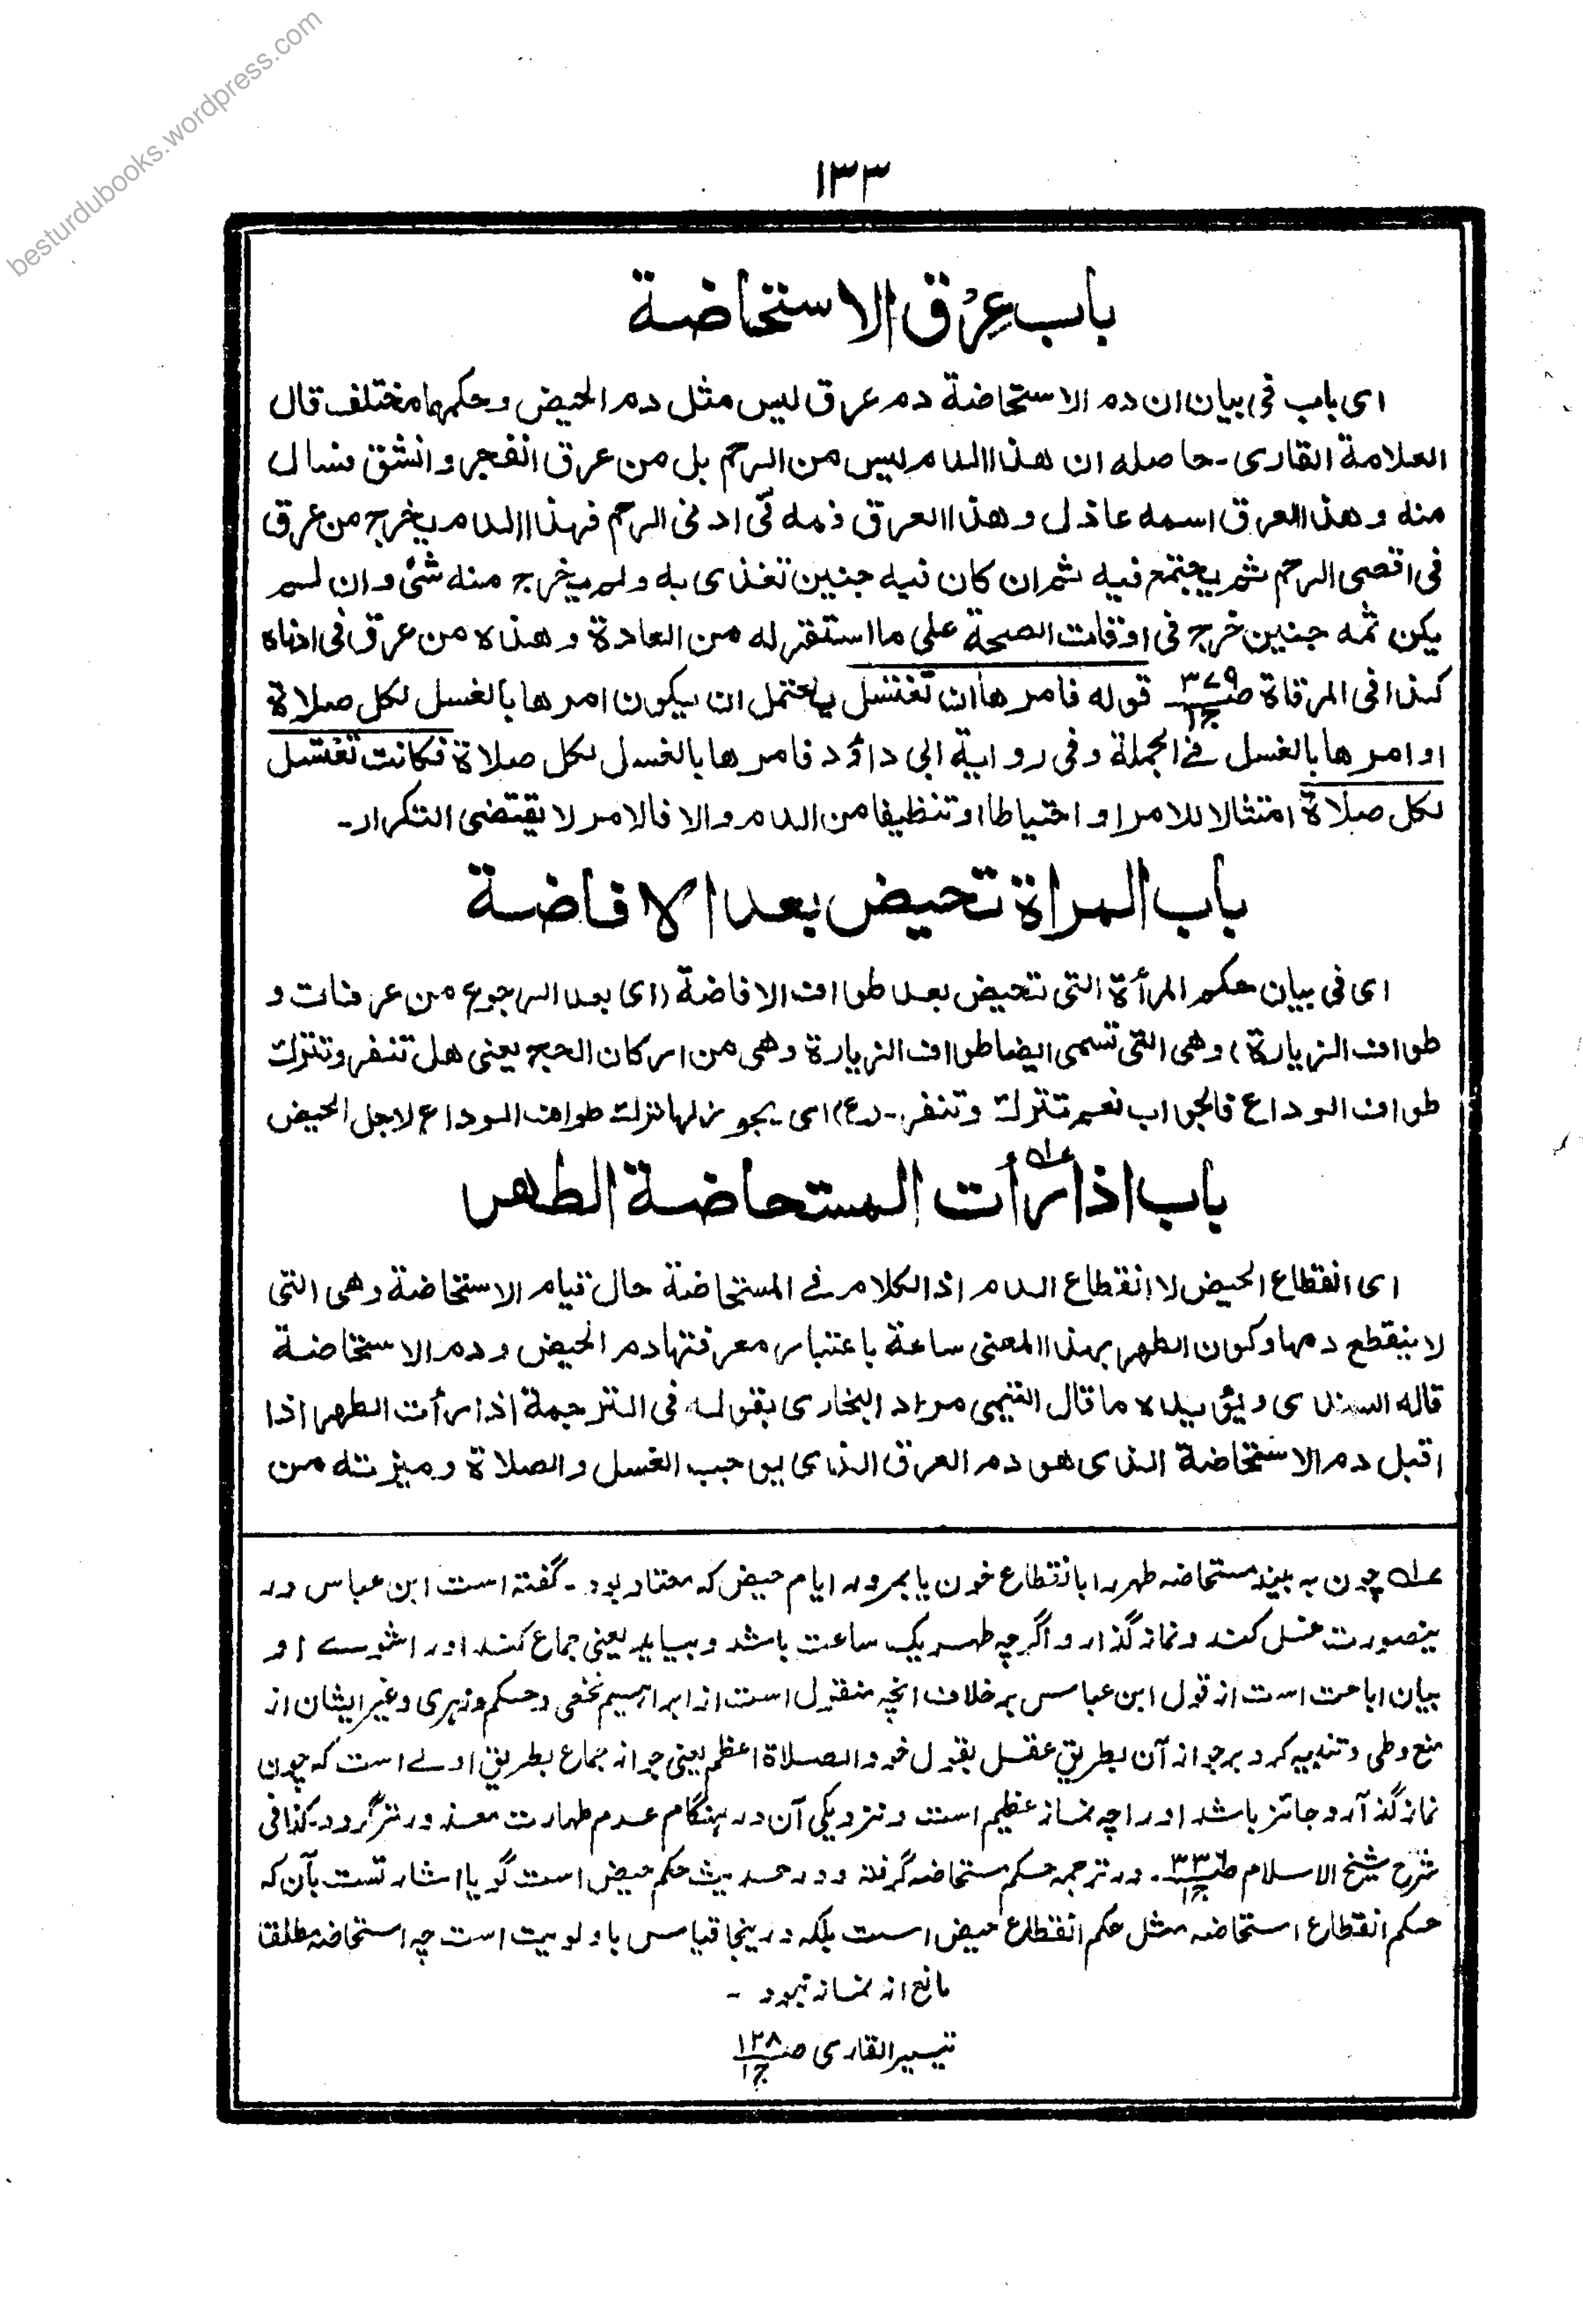 besturdubooks.wordpress.com
١٣٣
باب عِرْق الاستحاضة
اى باب فى بيان ان دم الاستحاضة دم عرق ليس مثل دم الحيض وحكمهما مختلف قال
العلامة القارى ـ حاصله ان هذا الدم ليس من الرحم بل من عرق انفجر وانشق فسال
منه وهذا العرق اسمه عاذل وهذا العرق فمه فى ادنى الرحم فهذا الدم يخرج من عرق
فى اقصى الرحم ثم يجتمع فيه ثم ان كان فيه جنين تغذى به ولم يخرج منه شئ وان لم
يكن ثمه جنين خرج فى اوقات الصحة على ما استقر له من العادة وهذه من عرق فى ادناه
كذا فى المرقاة صـ٣٧٩ ج١ قوله فامرها ان تغتسل يحتمل ان يكون امرها بالغسل لكل صلاة
او امرها بالغسل فى الجملة وفى رواية ابى داؤد فامرها بالغسل لكل صلاة فكانت تغتسل
لكل صلاة امتثالا للامر او احتياطا او تنظيفا من الدم والا فالامر لا يقتضى التكرار ـ
باب المراة تحيض بعد الافاضة
اى فى بيان حكم المرأة التى تحيض بعد طواف الافاضة (اى بعد الرجوع من عرفات و
طواف الزيارة) وهى التى تسمى ايضا طواف الزيارة وهى من اركان الحج يعنى هل تنفر وتترك
طواف الوداع فالجواب نعم تترك وتنفر ـ (ع) اى يجوز لها ترك طواف الوداع لاجل الحيض
باب اذا رأت المستحاضة الطهر عـه
اى انقطاع الحيض لا انقطاع الدم اذ الكلام فى المستحاضة حال قيام الاستحاضة وهى التى
لا ينقطع دمها وكون الطهر بهذا المعنى ساعة باعتبار معرفتها دم الحيض ودم الاستحاضة
قاله السندى ويؤيده ما قال التيمى مراد البخارى بقوله فى الترجمة اذا رأت الطهر اذا
اقبل دم الاستحاضة الذى هو دم العرق الذى يوجب الغسل والصلاة وميزته من
عـه چون به بيند مستحاضه طهر را بانقطاع خون يا بمرور ايام حيض كه معتاد بود ـ گفته است ابن عباس در
ينصورت غسل كند ونماز گذارد اگرچه طهر يک ساعت باشد وبيايد يعنى جماع كند او را شوے او
بيان اباحت است از قول ابن عباس بر خلاف انچه منقول است از ابراہيم نخعى وحكم وزہرى وغير ايشان از
منع وطى وتنبيه كرد بر جواز آن بطريق عقل بقول خود والصلاة اعظم يعنى جواز جماع بطريق اولے است كه چون
نماز گذآرد جائز باشد او را چه نماز عظيم است ونزديكى آن در ہنگام عدم طهارت معذور تر گردد ـ كذا فى
شرح شيخ الاسلام صـ٣٣٦ ج١ ـ در ترجمه حكم مستحاضه گرفته ودر حديث حكم حيض است گويا اشارتست بآن كه
حكم انقطاع استحاضه مثل حكم انقطاع حيض است بلكه درينجا قياس باولويت است چه استحاضه مطلقا
مانع از نماز نبود ـ
تيسير القارى صـ١٢٨ ج١